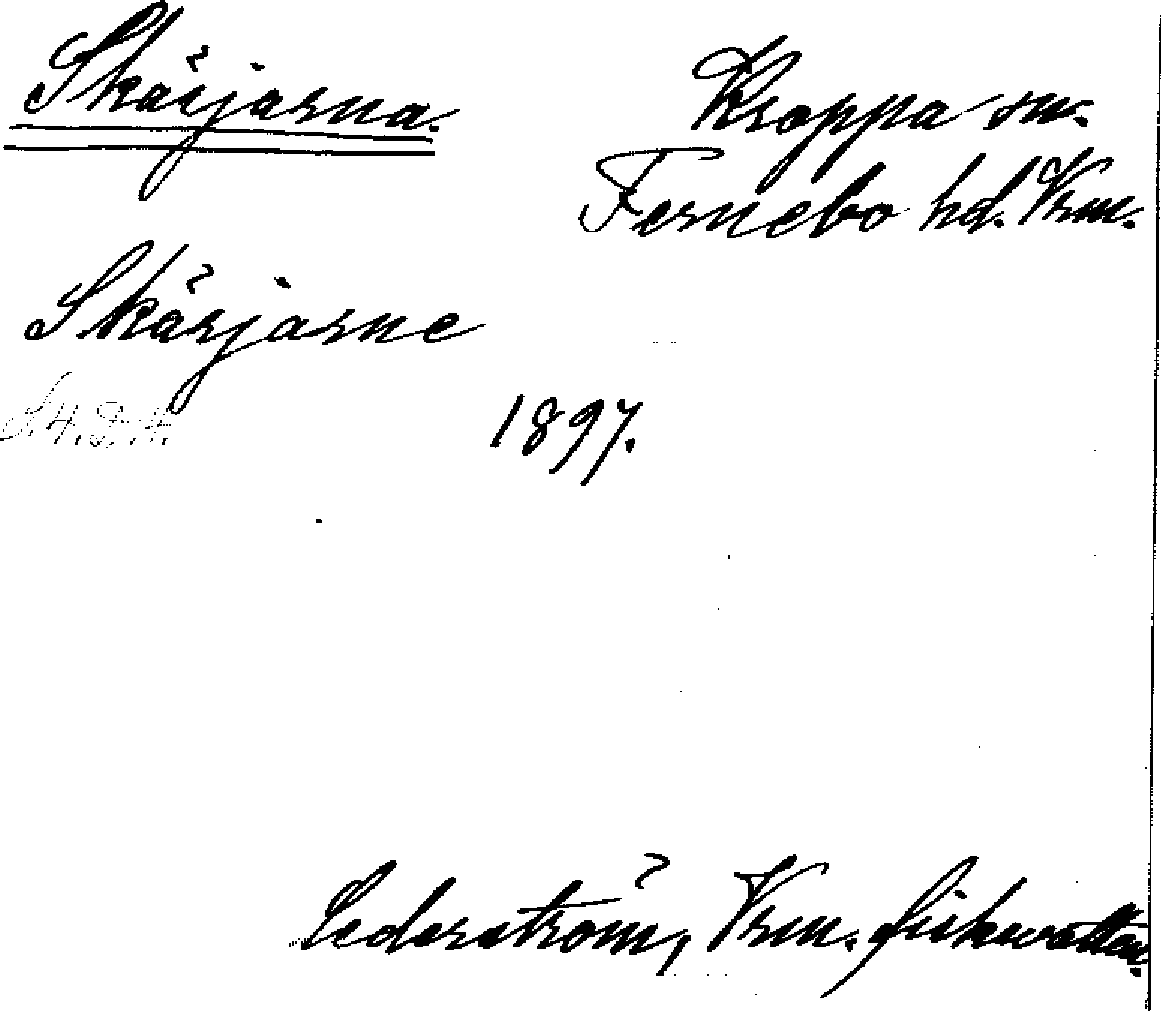 Skärjarna.
Kroppa sn.
Fernebo hd. Vrm.
Skärjarne
1897.
Cederström, Vrm. fiskevatten.